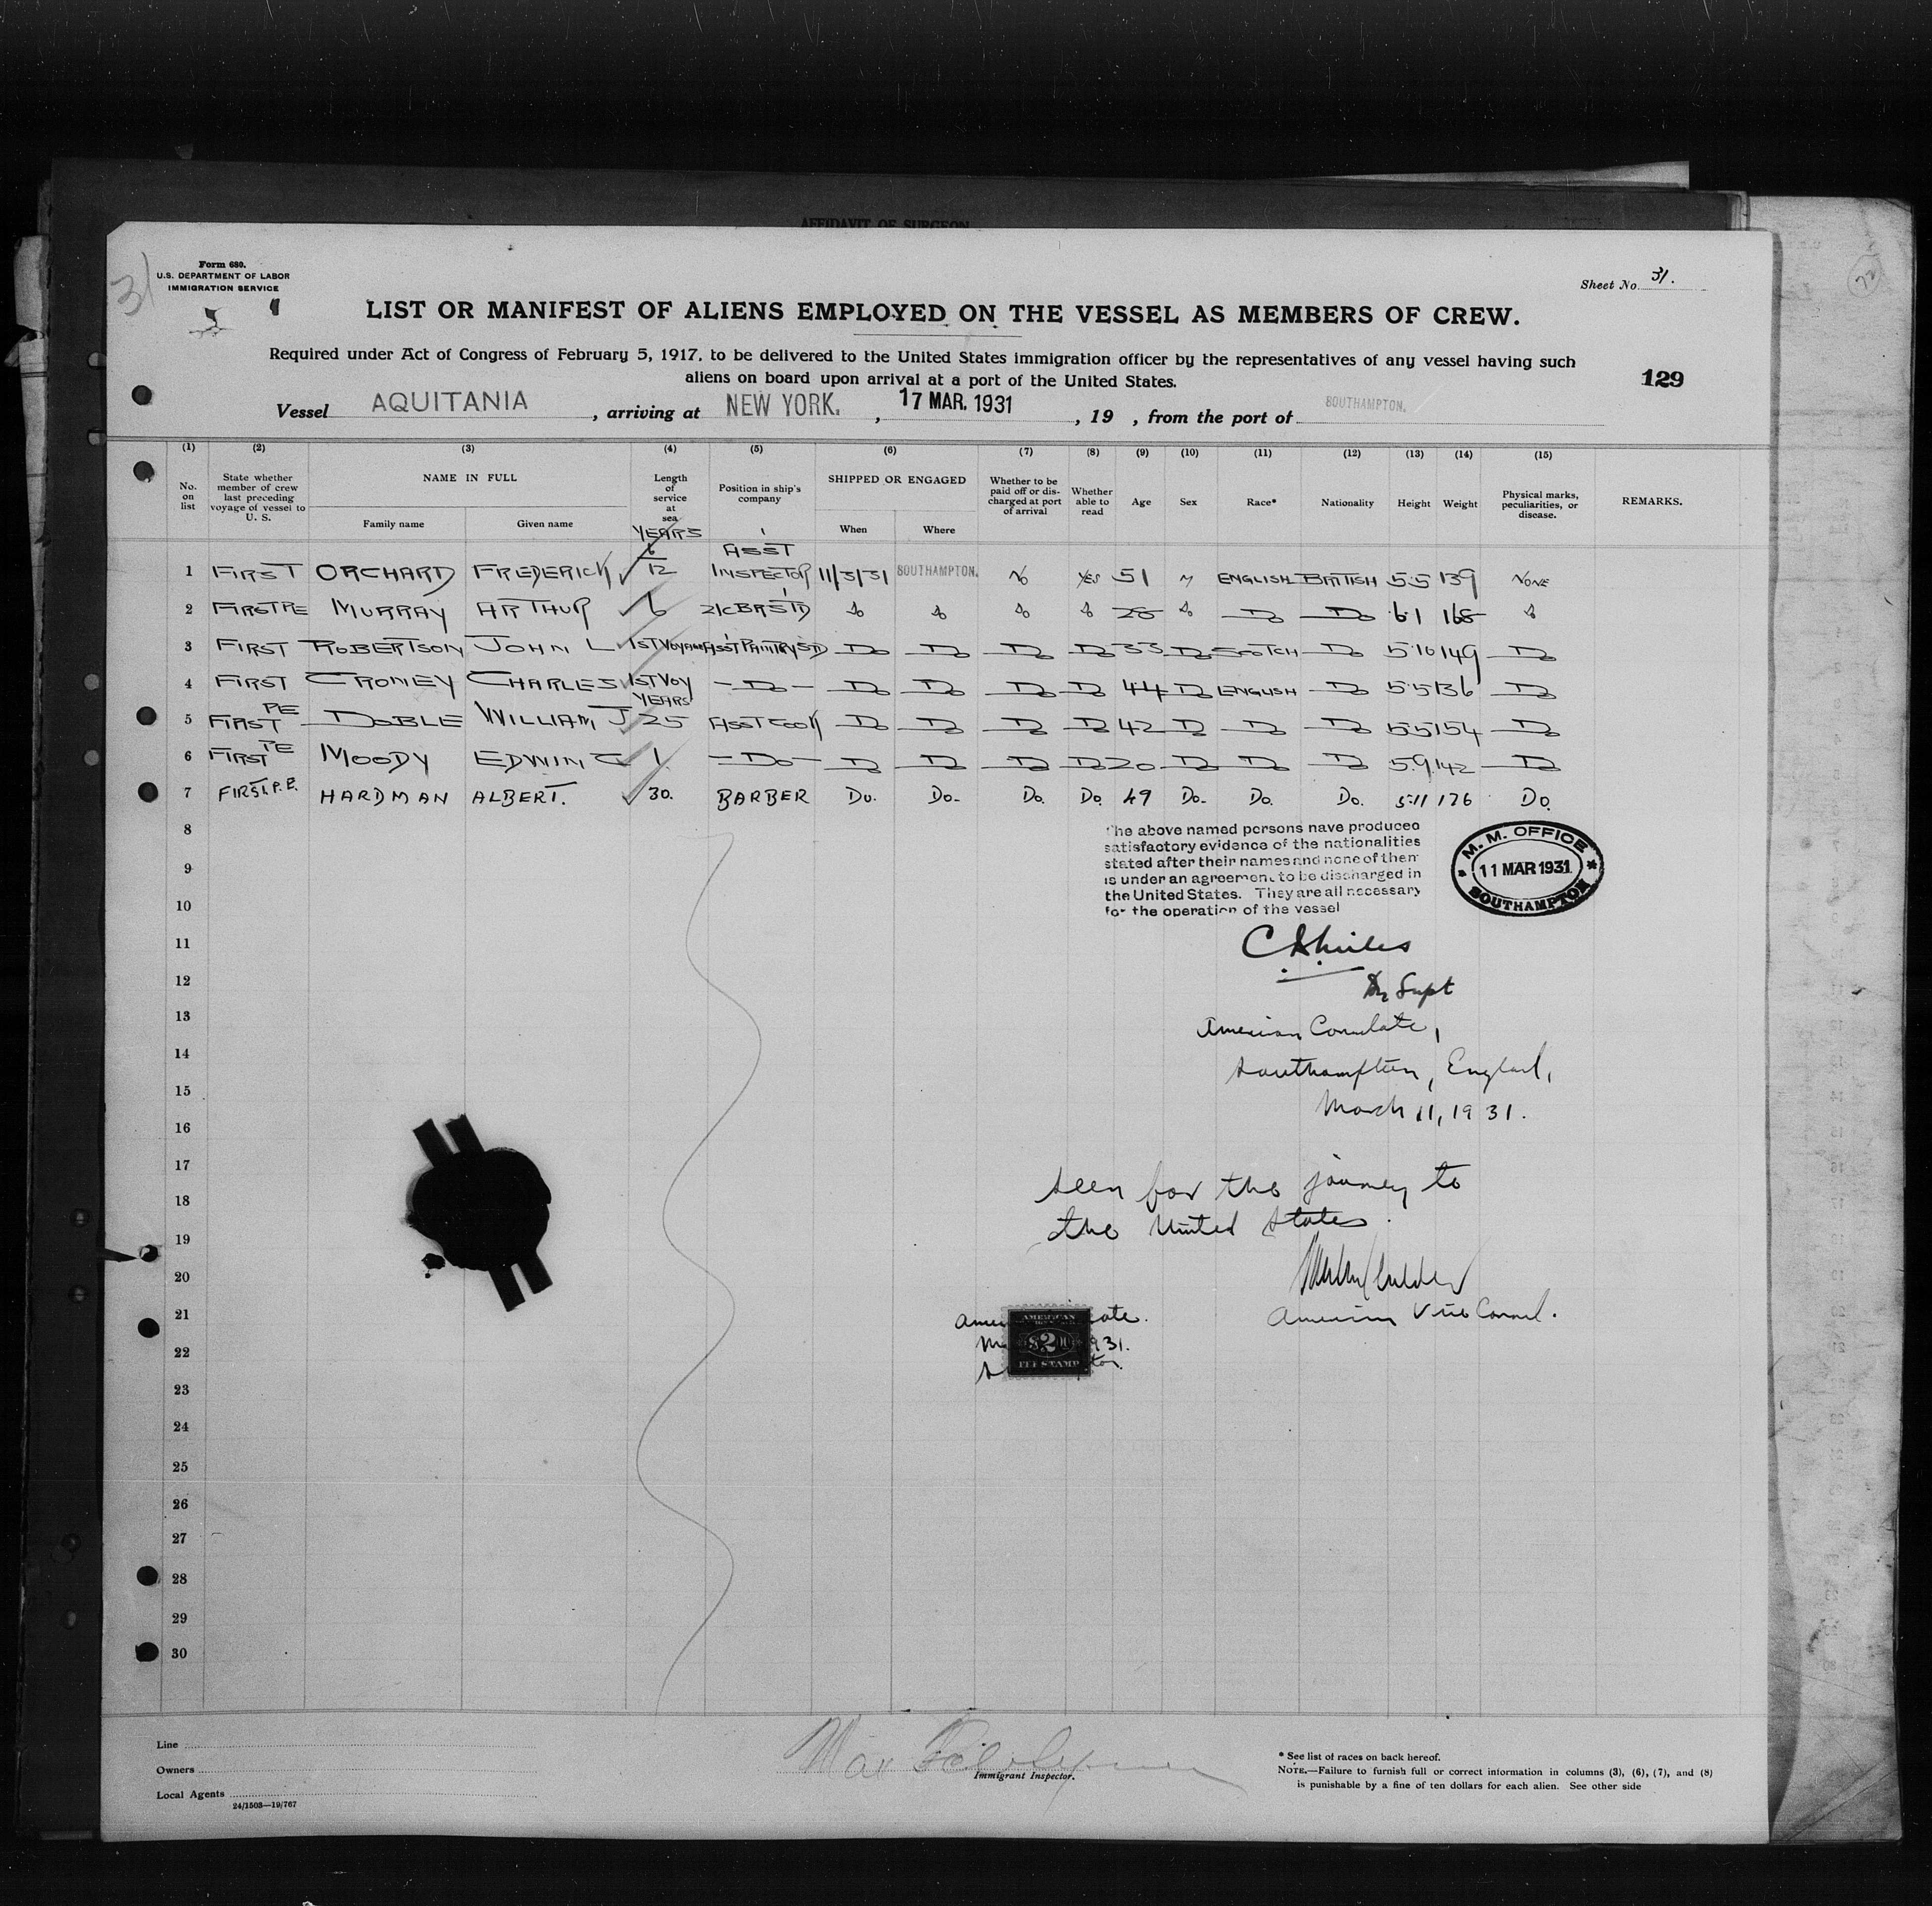 AFFIDAVIT OF SURGEON
31
Form 680.
U.S. DEPARTMENT OF LABOR
IMMIGRATION SERVICE
Sheet No. 31.
LIST OR MANIFEST OF ALIENS EMPLOYED ON THE VESSEL AS MEMBERS OF CREW.
Required under Act of Congress of February 5, 1917, to be delivered to the United States immigration officer by the representatives of any vessel having such
aliens on board upon arrival at a port of the United States.
129
Vessel AQUITANIA, arriving at NEW YORK., 17 MAR. 1931, 19 , from the port of SOUTHAMPTON.
(1) (2) (3) (4) (5) (6) (7) (8) (9) (10) (11) (12) (13) (14) (15)
No. on list State whether member of crew last preceding voyage of vessel to U. S. NAME IN FULL Family name Given name Length of service at sea YEARS Position in ship's company SHIPPED OR ENGAGED When Where Whether to be paid off or discharged at port of arrival Whether able to read Age Sex Race* Nationality Height Weight Physical marks, peculiarities, or disease. REMARKS.
1 FIRST ORCHARD FREDERICK 6/12 ASST INSPECTOR 11/3/31 SOUTHAMPTON. NO YES 51 M ENGLISH BRITISH 5·5 139 NONE
2 FIRST PE MURRAY ARTHUR 6 2/C B R STD do do do do 28 do Do Do 6·1 168 do
3 FIRST ROBERTSON JOHN L 1ST VOYAGE ASST PANTRY STD Do Do Do Do 33 Do SCOTCH Do 5·10 149 Do
4 FIRST CROMEY CHARLES 1ST VOY - Do - Do Do Do Do 44 Do ENGLISH Do 5·5 136 Do
5 FIRST PE DOBLE WILLIAM J YEARS 25 ASST COOK Do Do Do Do 42 Do Do Do 5·5 154 Do
6 FIRST PE MOODY EDWIN C 1. - Do - Do Do Do Do 20 Do Do Do 5·9 142 Do
7 FIRST. P.E. HARDMAN ALBERT. 30. BARBER Do. Do. Do. Do. 49 Do. Do. Do. 5·11 176 Do.
8
9
10
11
12
13
14
15
16
17
18
19
20
21
22
23
24
25
26
27
28
29
30
The above named persons have produced
satisfactory evidence of the nationalities
stated after their names and none of them
is under an agreement to be discharged in
the United States. They are all necessary
for the operation of the vessel
M. M. OFFICE
11 MAR 1931
SOUTHAMPTON
Supt
American Consulate,
Southampton, England,
March 11, 1931.
Seen for the journey to
the United States.
American Vice Consul.
AMERICAN
$2.00
FEE STAMP
931.
Line
Owners
Local Agents
24/1503—19/767
Immigrant Inspector.
* See list of races on back hereof.
NOTE.—Failure to furnish full or correct information in columns (3), (6), (7), and (8)
is punishable by a fine of ten dollars for each alien. See other side